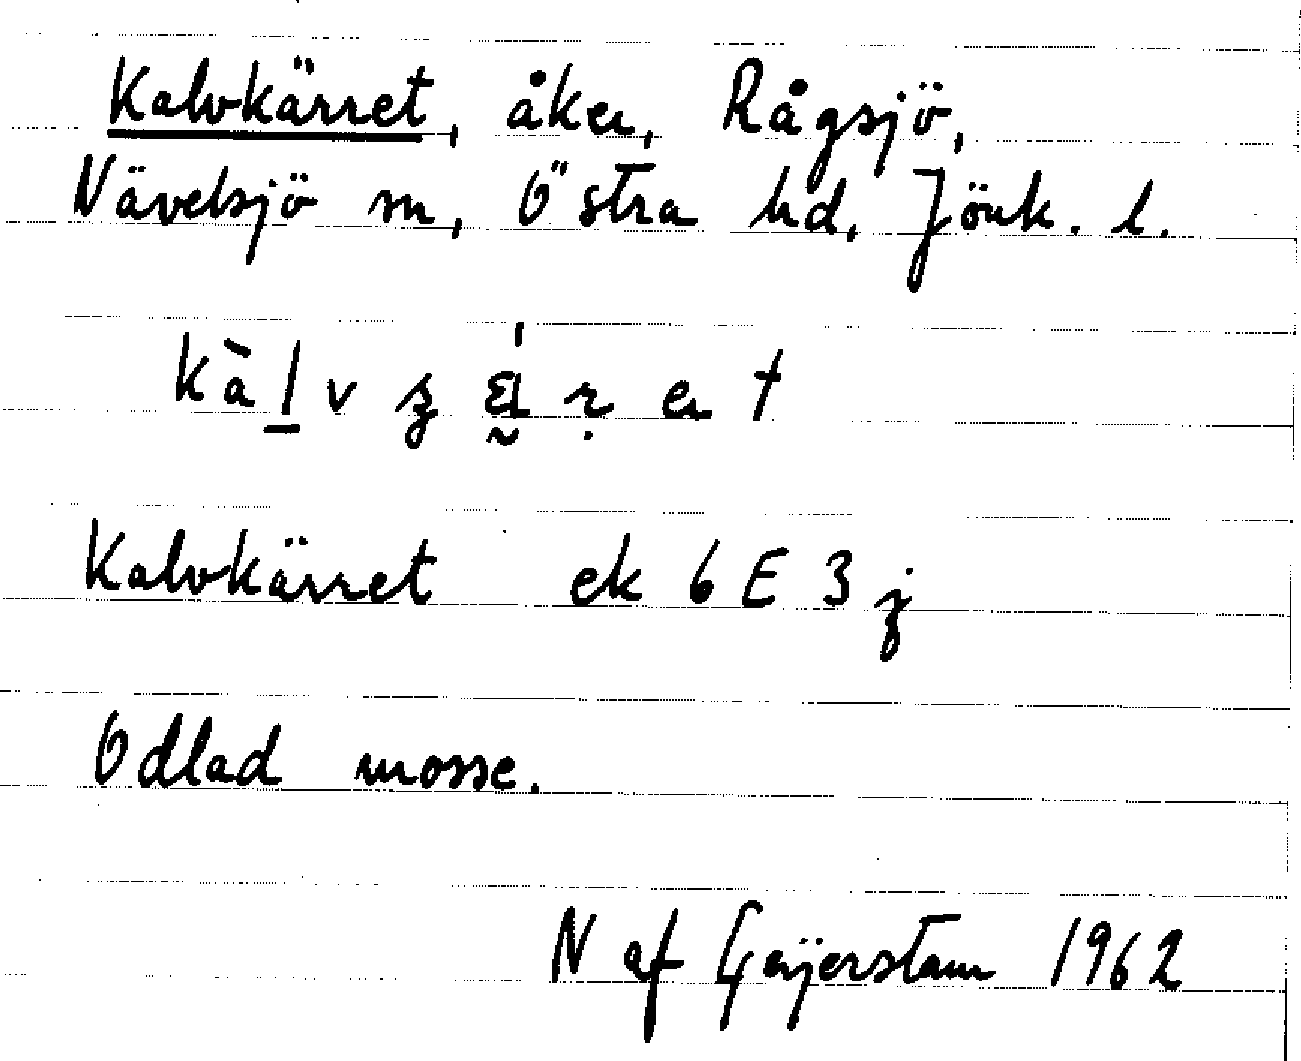 Kalvkärret, åker, Rågsjö,
Nävelsjö sn, Östra hd, Jönk. l.
Kalvkärret ek 6 E 3 j
Odlad mosse.
N af Geijerstam 1962